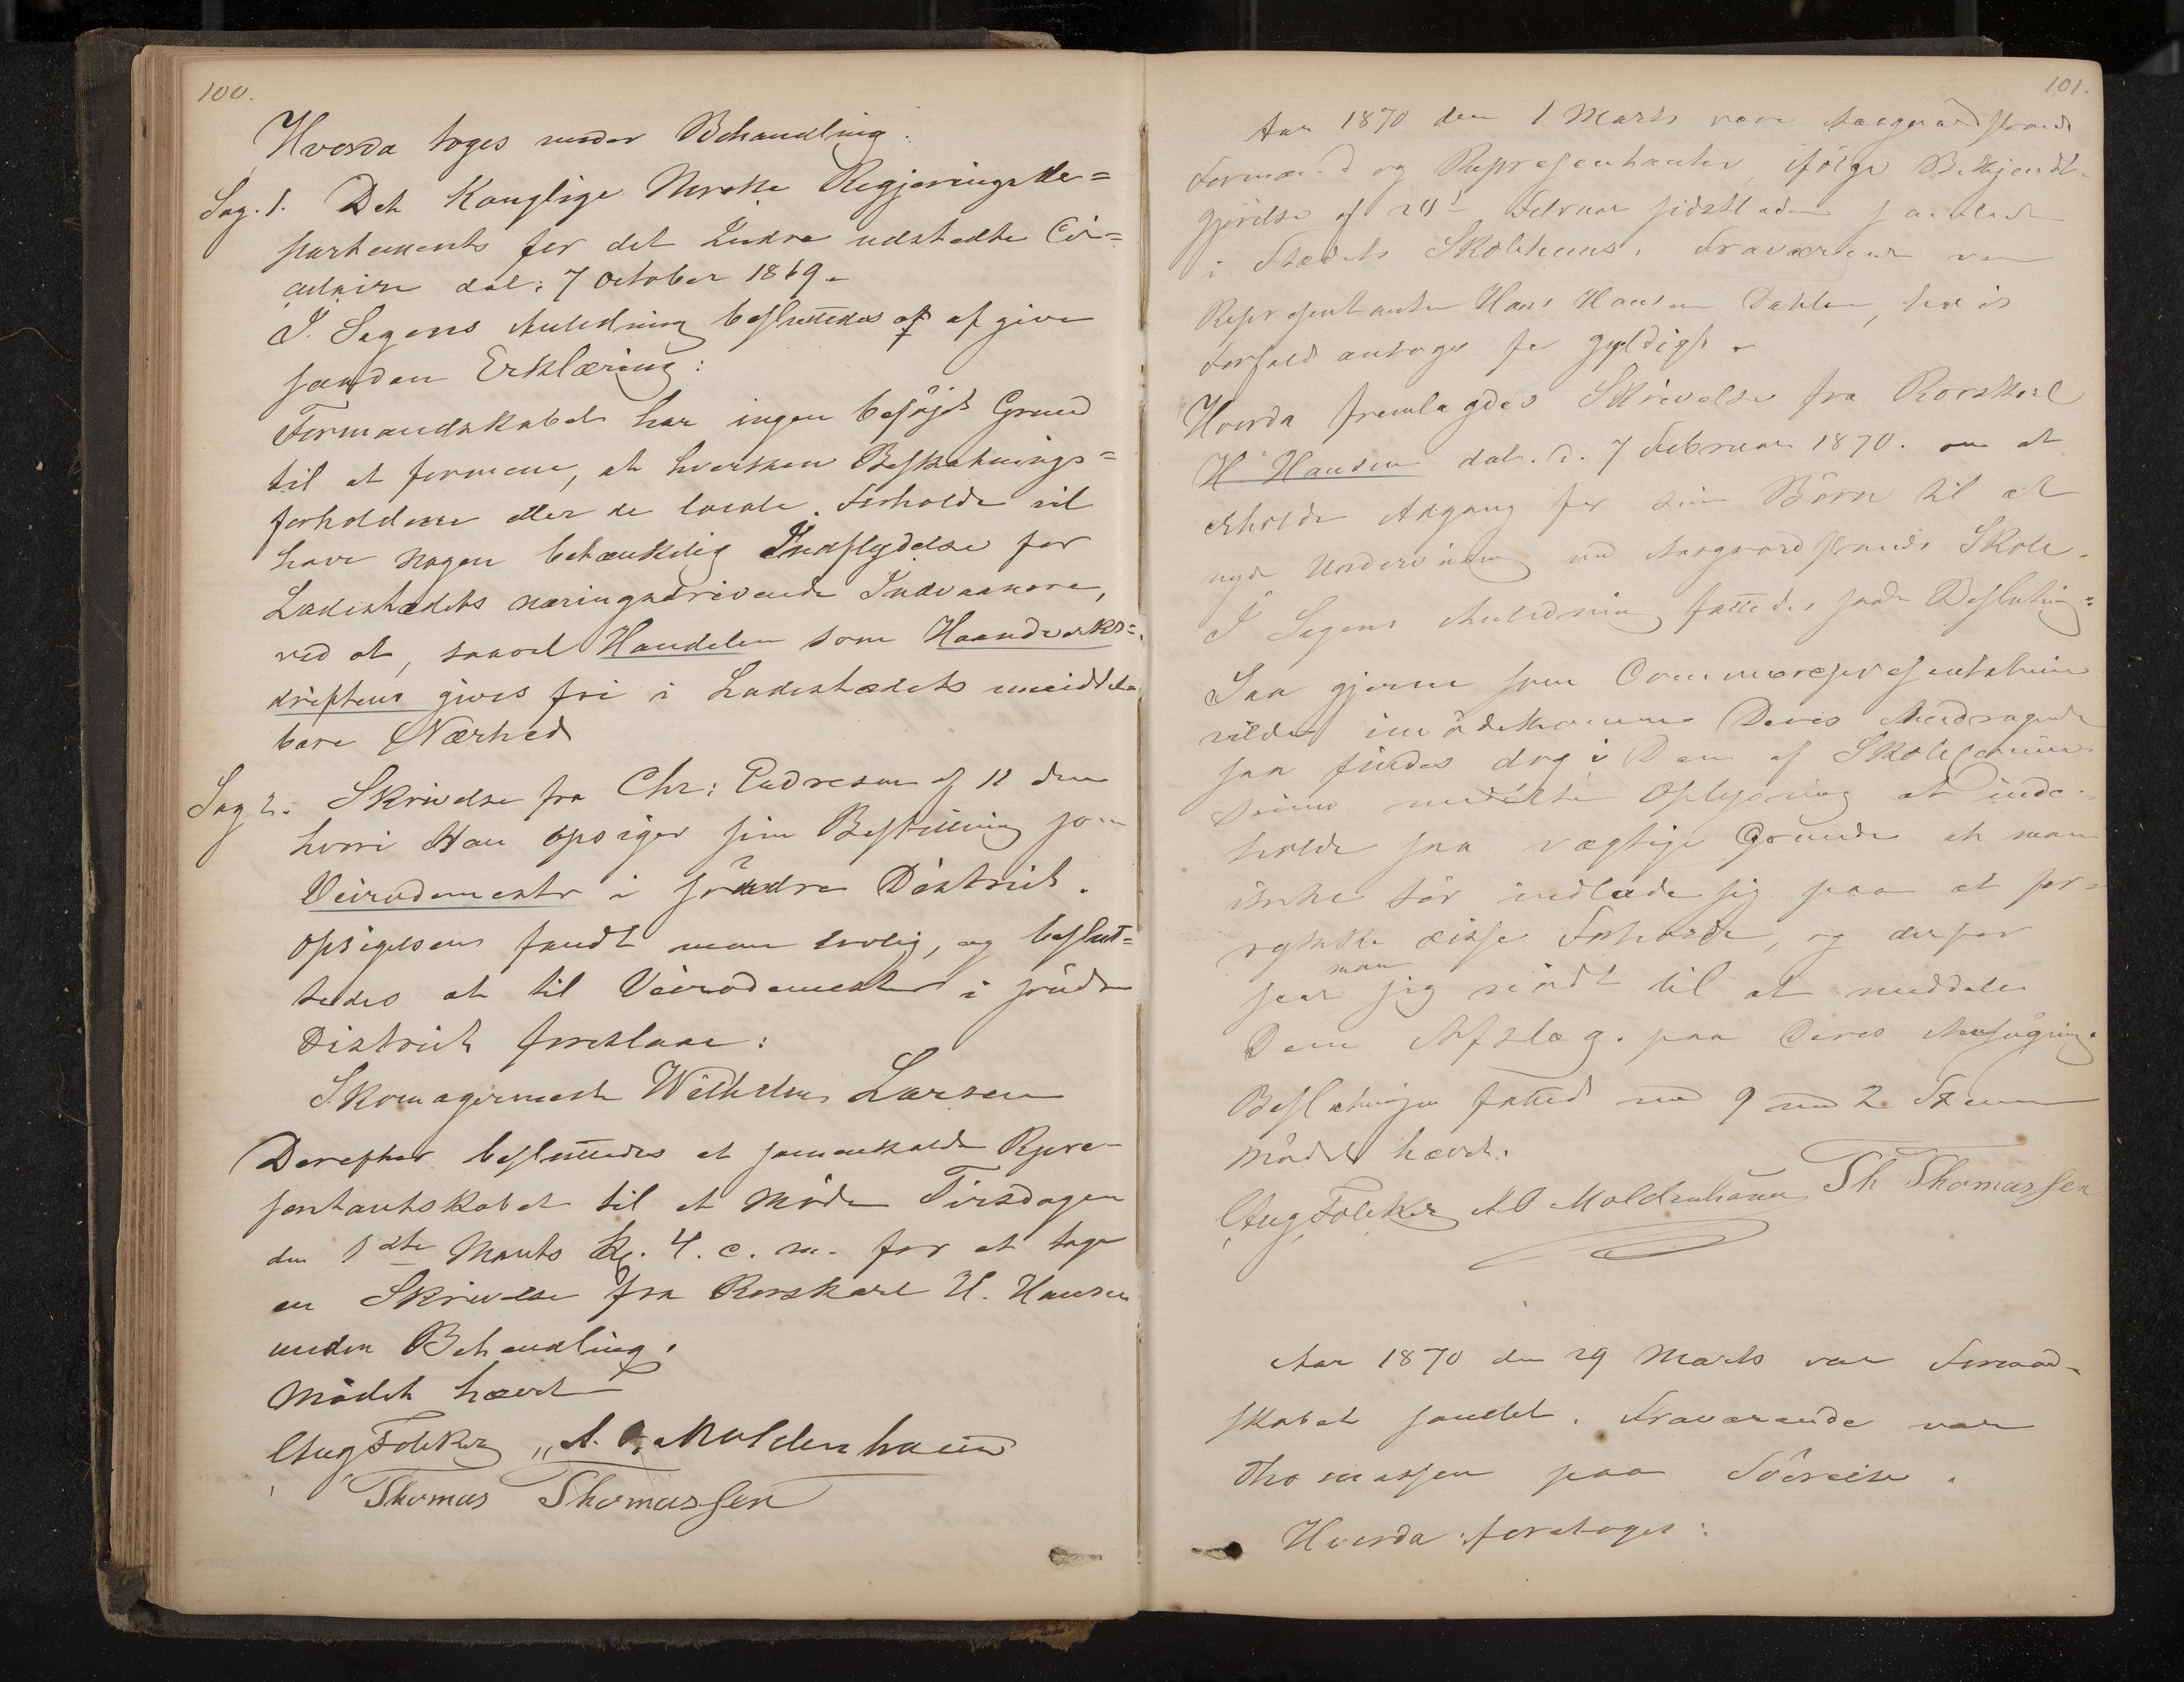 100.
Hvorda toges under Behandling:
Sag. 1. Det Konglige Norske Regjeringsde=
partements for det Indre udstedte Cir=
culaire dat: 7 October 1869.
I Sagens Anledning besluttedes at afgive
saadan Erklæring:
Formandskabet har ingen beföjet Grund
til at formene, at hverken Beskatnings=
forholdene eller de locale Forholde vil
have nogen betænkelig Indflydelse for
Ladestædets næringsdrivende Indvaanere,
ved at, saavel Handelen som Haandverks=
driftens gives fri i Ladestædets umiddel=
bare Nærhed
Sag 2. Skrivelse fra Chr: Pedresen af 12 den
hvori Han opsiger sin Bestilling som
Veirodemester i söndre District.
Opsigelsen fandt man lovlig, og beslut=
tedes at til Veirodemester i söndre
District foreslaae:
Skomagermester Wilhelm Larsen
Derefter besluttedes at sammenkalde Repre-
sentantskabet til et Möde Tirsdagen
den 1ste Marts Kl. 4. e. m. for at tage
en Skrivelse fra Rorskarl H. Hansen
under Behandling.
Mödet hævet
Aug Folcker A. O. Moldenhauer
Thomas Thomassen
101.
Aar 1870 den 1 Marts vare Aasgaardstrands
Formænd og Representanter, ifölge Bekjendt-
gjörelse af Februar sidstleden samlede
i Stædets Skolehuus. Fraværende var
Representanten Hans Hansen Dahlen, hvis
Forfald antoges for gyldigt.
Hvorda fremlagdes Skrivelse fra Rorskarl
H. Hansen dat. d. 7 Februar 1870. om at
erholde Adgang for sine Börn til at
nyde Underviisning ved Aasgaardstrands Skole.
I Sagens Anledning fattedes saadan Beslutning:
Saa gjerne som Communerepresentationen
vilde imödekomme Deres Andragende
saa findes dog i Den af Skolecommis-
sionen meddelte Oplysning at inde-
holde saa vægtige Grunde at man
ikke tör indlade sig paa at for-
rykke disse Forholde, og derfor
seer man sig nödt til at meddele
Dem Afslag. paa Deres Ansögning.
Beslutningen fattedes med 9 mod 2 Stemmer
Mödet hævet.
Aug Folcker A O Moldenhauer Th Thomassen
Aar 1870 den 29 Marts var Formand-
skabet samlet. Fraværende var
Thomassen paa Söreise.
Hvorda foretoges: